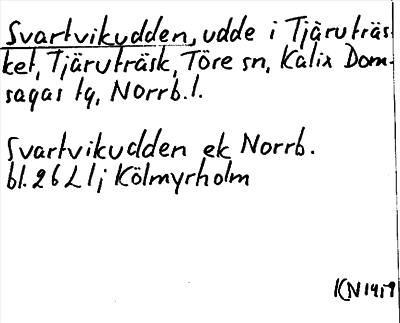 Svartvikudden, udde i Tjäruträs-
ket, Tjäruträsk, Töre sn, Kalix Dom-
sagas tg, Norrb.l.
Svartvikudden ek Norrb.
bl. 26 L 1j Kölmyrholm
KN 1419